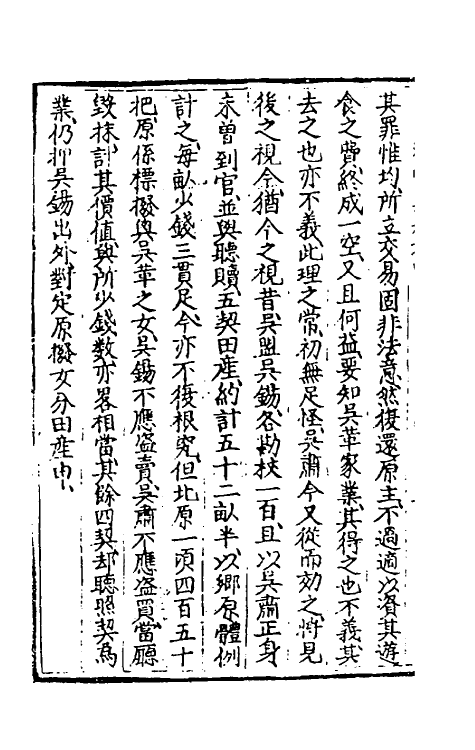 其罪惟均、所立交易、固非法意、然復還原主、不過適以資其遊
食之費、終成一空、又且何益、要知吳革家業、其得之也不義、其
去之也亦不義、此理之常、初無足怪、吳肅今又從而効之、將見
後之視今、猶今之視昔、吳盟吳錫、各勘校一百、且以吳肅正身
未曾到官、並與聽贖、五契田産、約計五十二畝半、以鄉原體例
計之、每畝少錢三貫足、今亦不復根究、但北原一項四百五十
把、原係標撥與吳革之女、吳錫不應盜賣、吳肅不應盜買、當廳
毀抹、計其價值、與所少錢數亦畧相當、其餘四契、却聽照契為
業、仍押吳錫出外、對定原撥女分田産申、